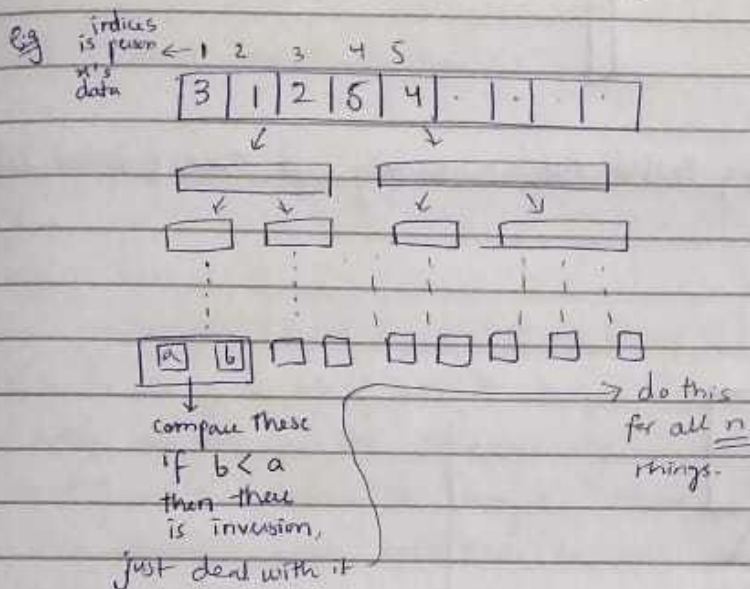 e.g indices
is person ← 1 2 3 4 5
x's
data
3 1 2 5 4 . . . .
a b
compare these
if b < a
then there
is inversion,
just deal with it
→ do this
for all n
things.